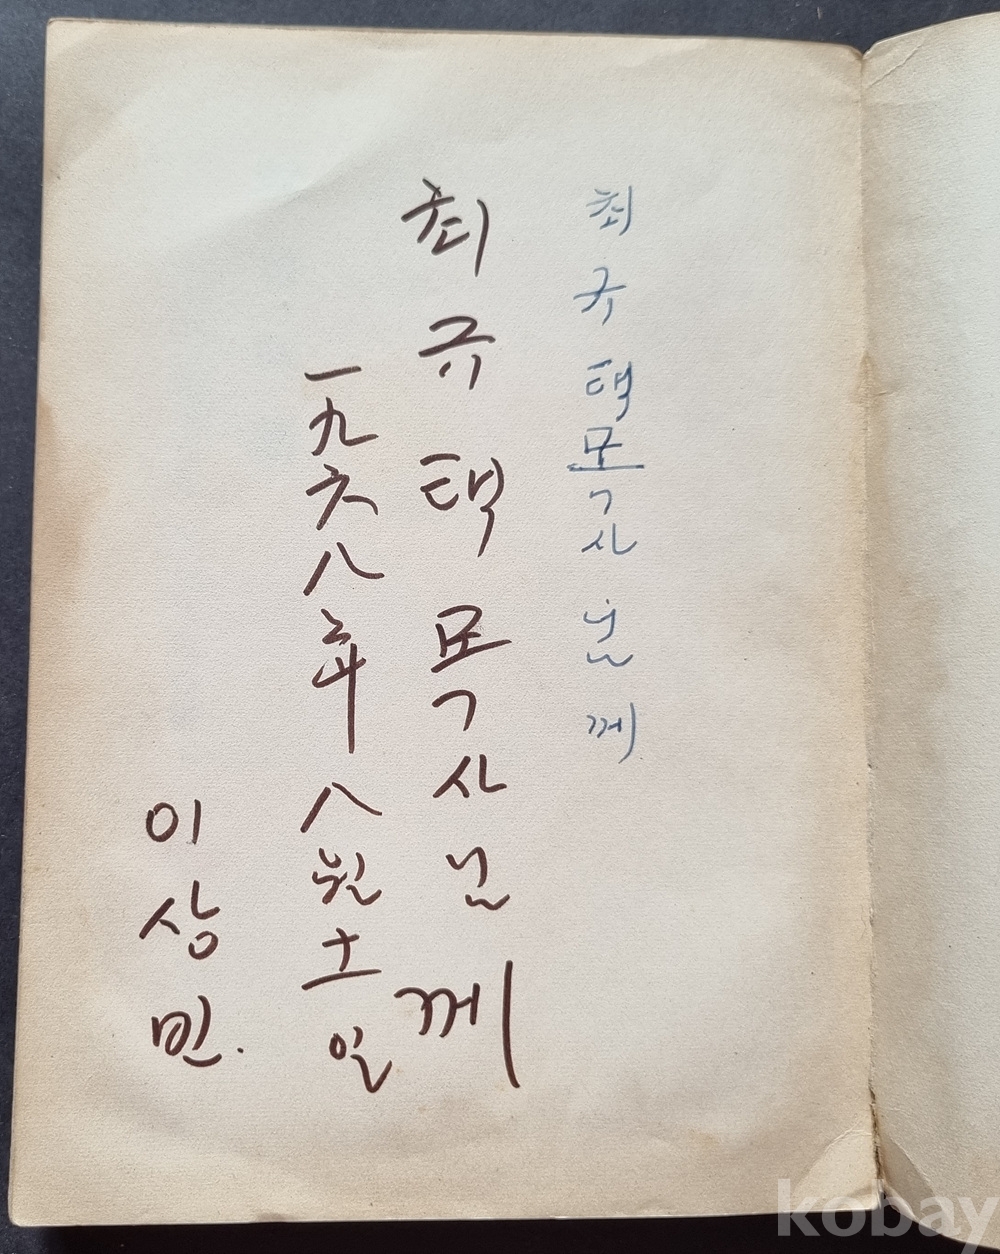 최규택목사님께
최규택목사님께
一九六八年 八월 十一일
이상민.
kobay